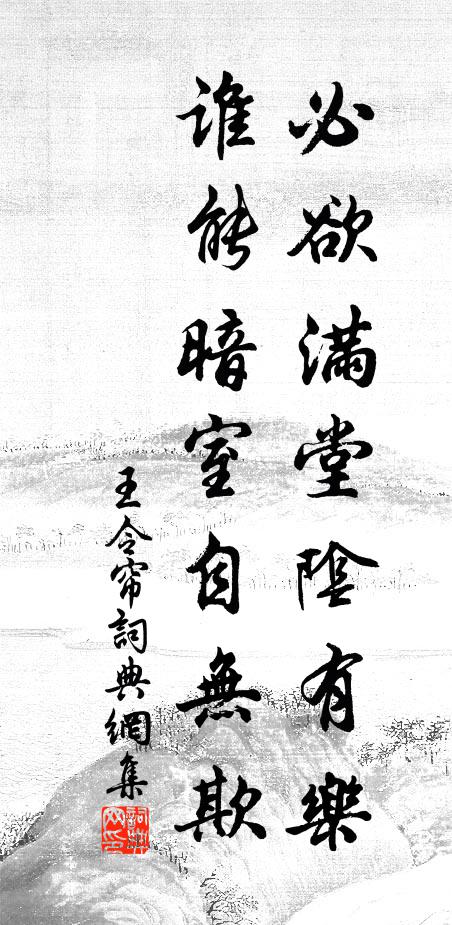 必欲滿堂陰有樂
誰能暗室自無欺
王令帘詞典網集
詞典网印